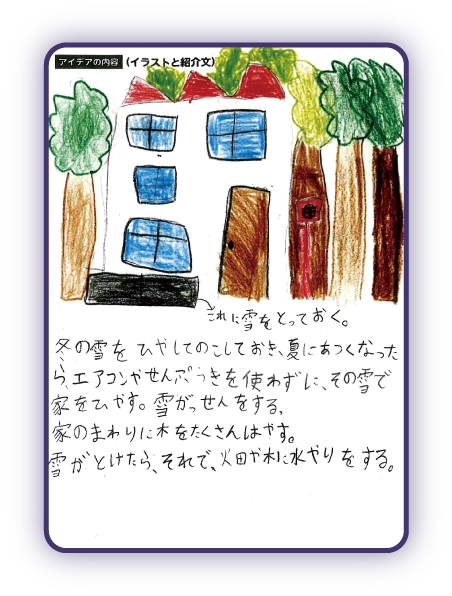 アイデアの内容 (イラストと紹介文)
これに雪をとっておく。
冬の雪を ひやしてのこしておき、夏にあつくなった
ら、エアコンやせんぷうきを使わずに、その雪で
家をひやす。雪がっせんをする。
家のまわりに木をたくさんはやす。
雪がとけたら、それで、火田や木に水やりをする。